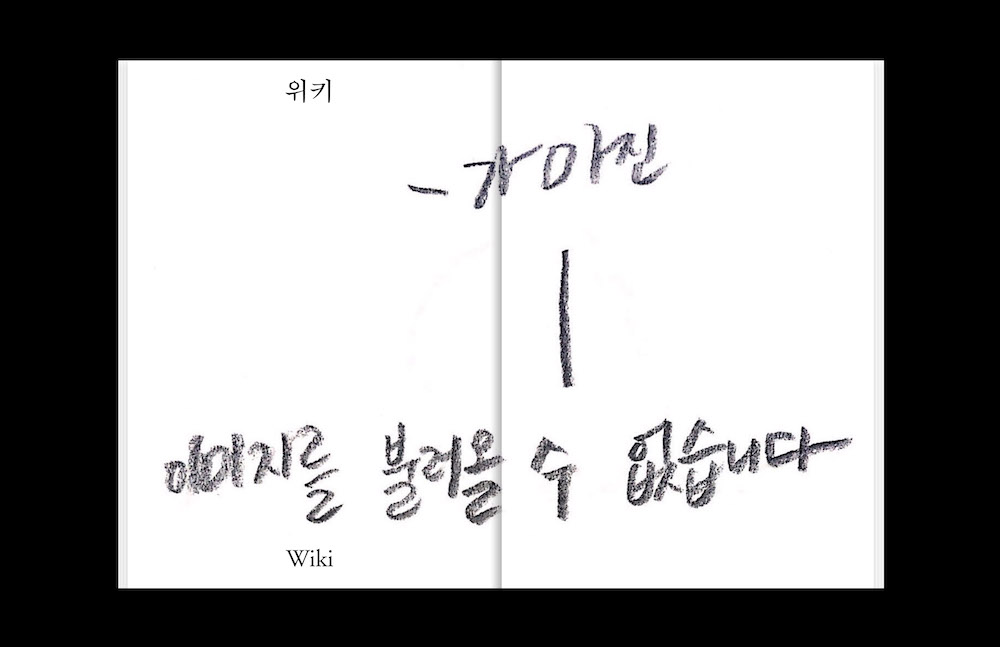 위키
-가마진
이미지를 불러올 수 없습니다
Wiki